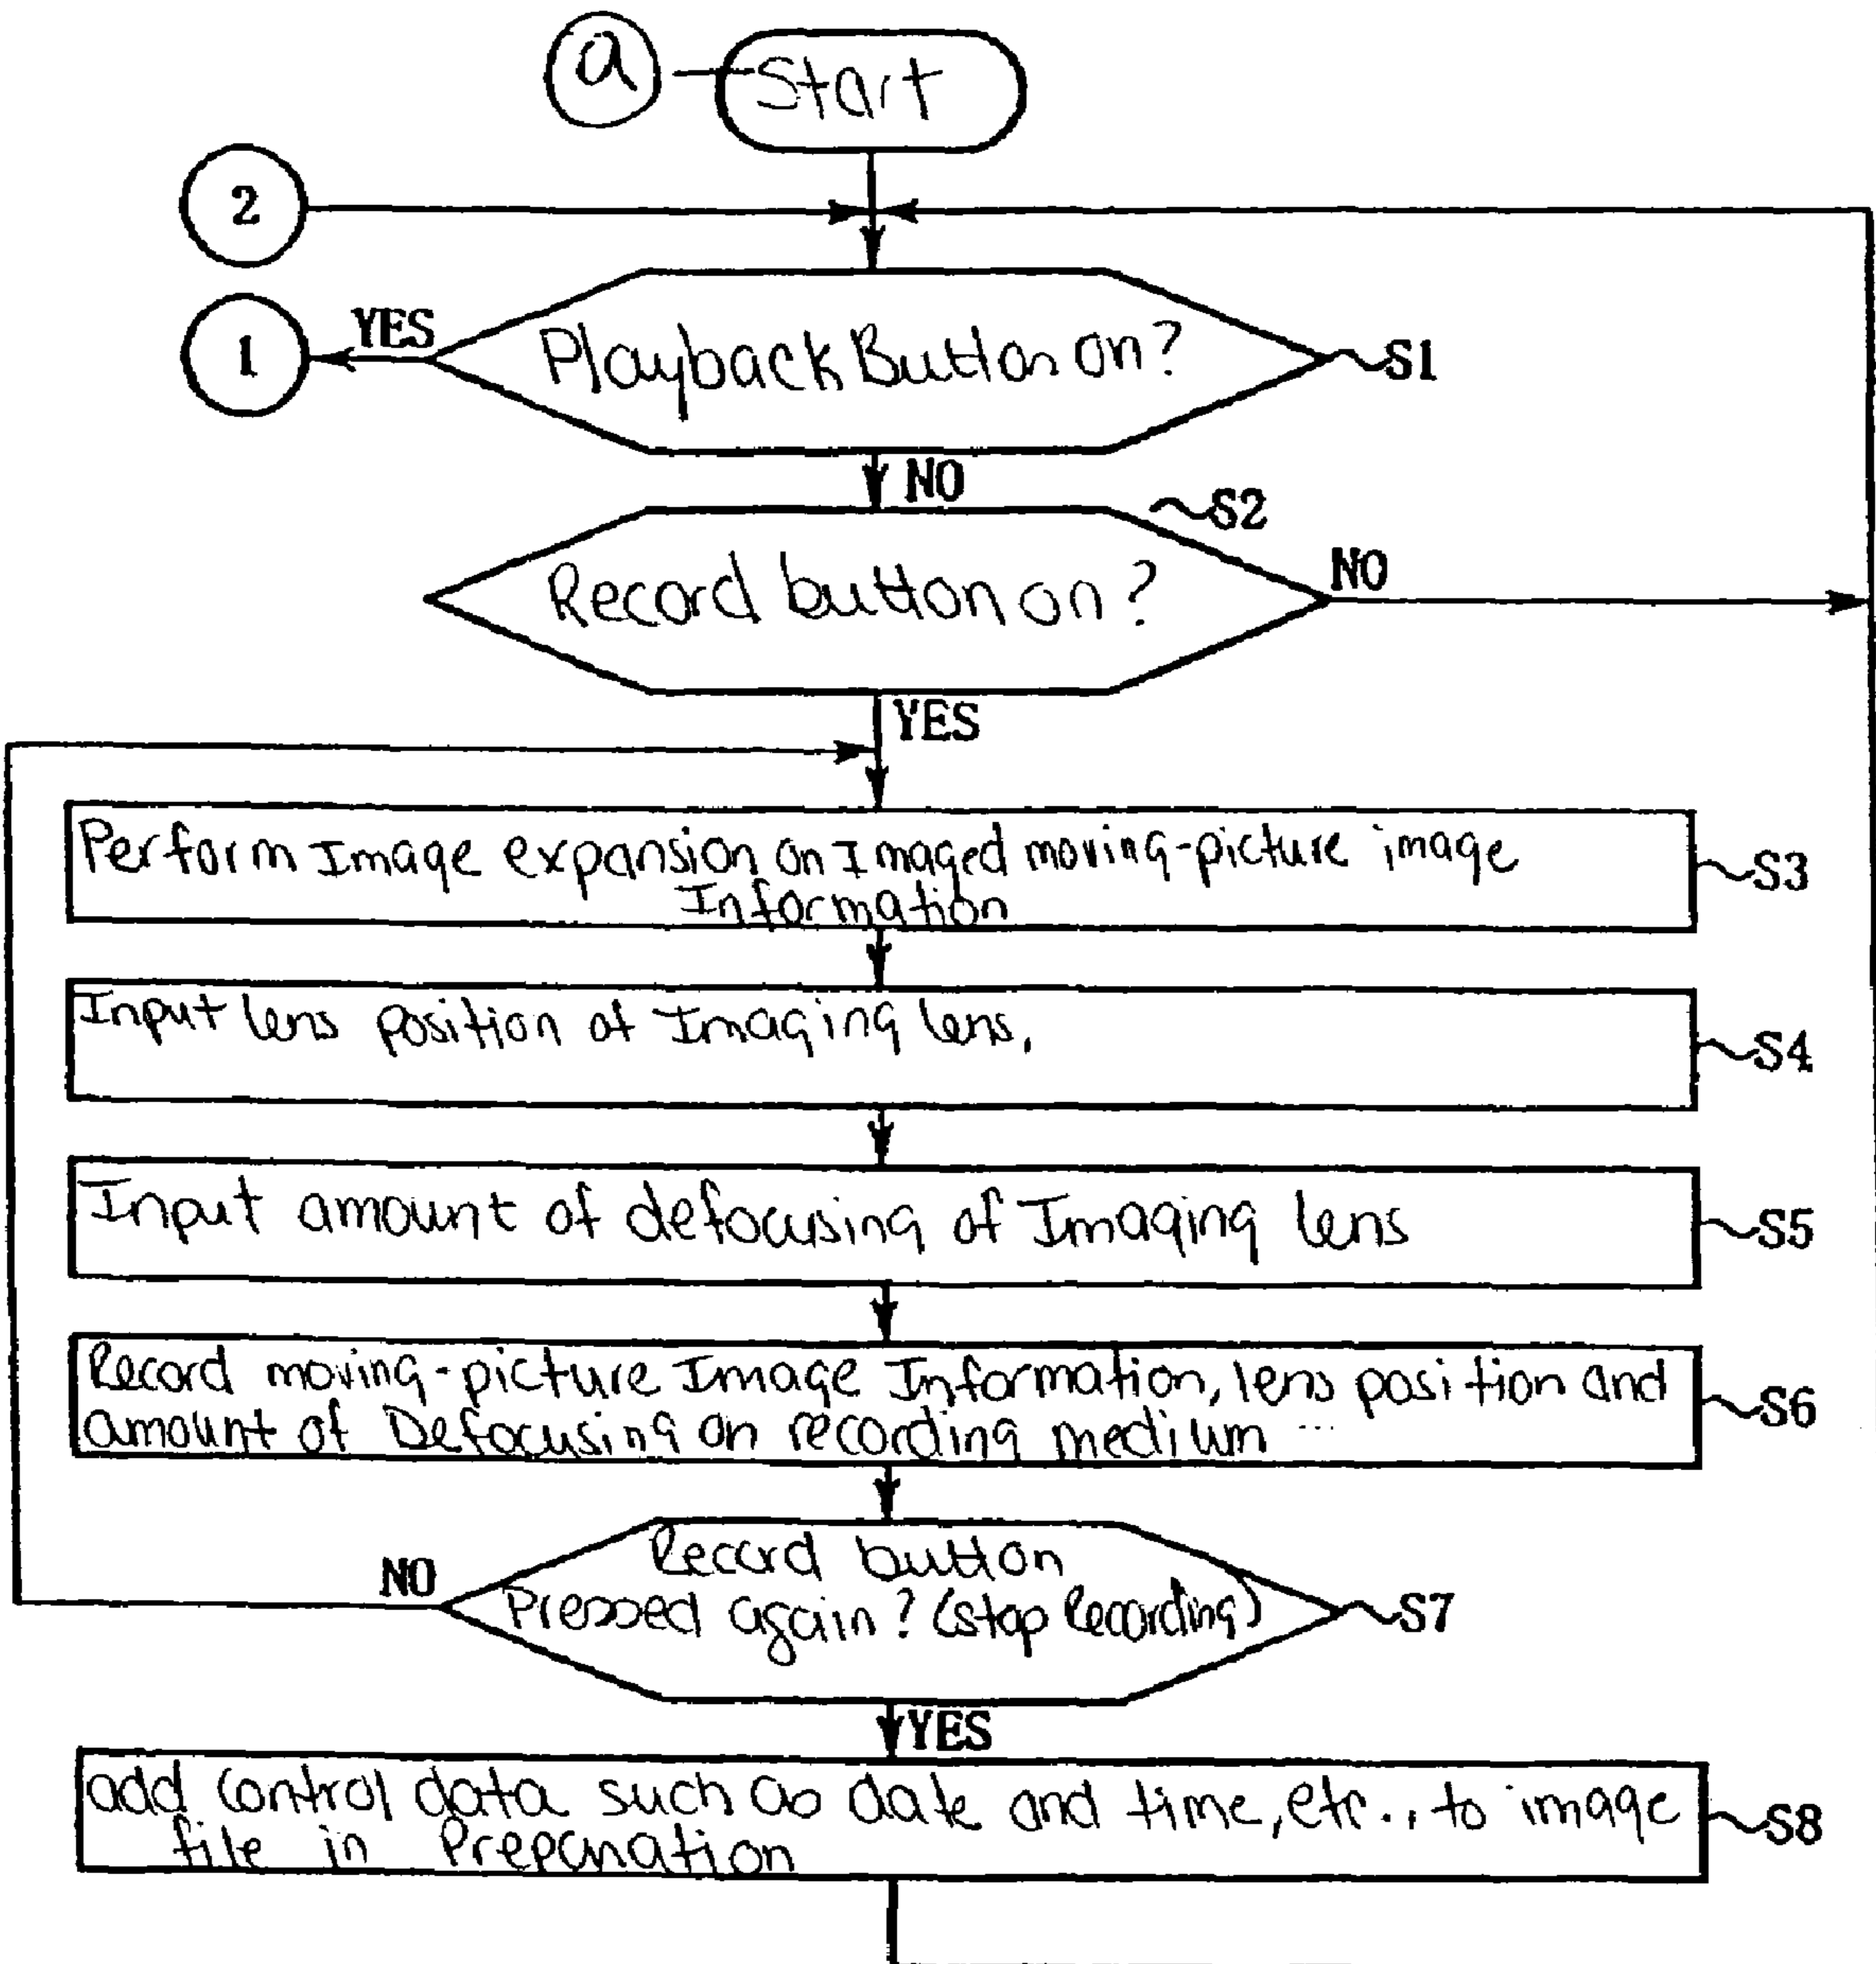 a Start
2
1 YES Playback Button on? S1
NO
S2
Record button on? NO
YES
Perform Image expansion on Imaged moving-picture image
Information
S3
Input lens position of Imaging lens.
S4
Input amount of defocusing of Imaging lens
S5
Record moving-picture Image Information, lens position and
amount of Defocusing on recording medium
S6
NO
Record button
Pressed again? (stop Recording)
S7
YES
add control data such as date and time, etc.., to image
file in Preparation
S8